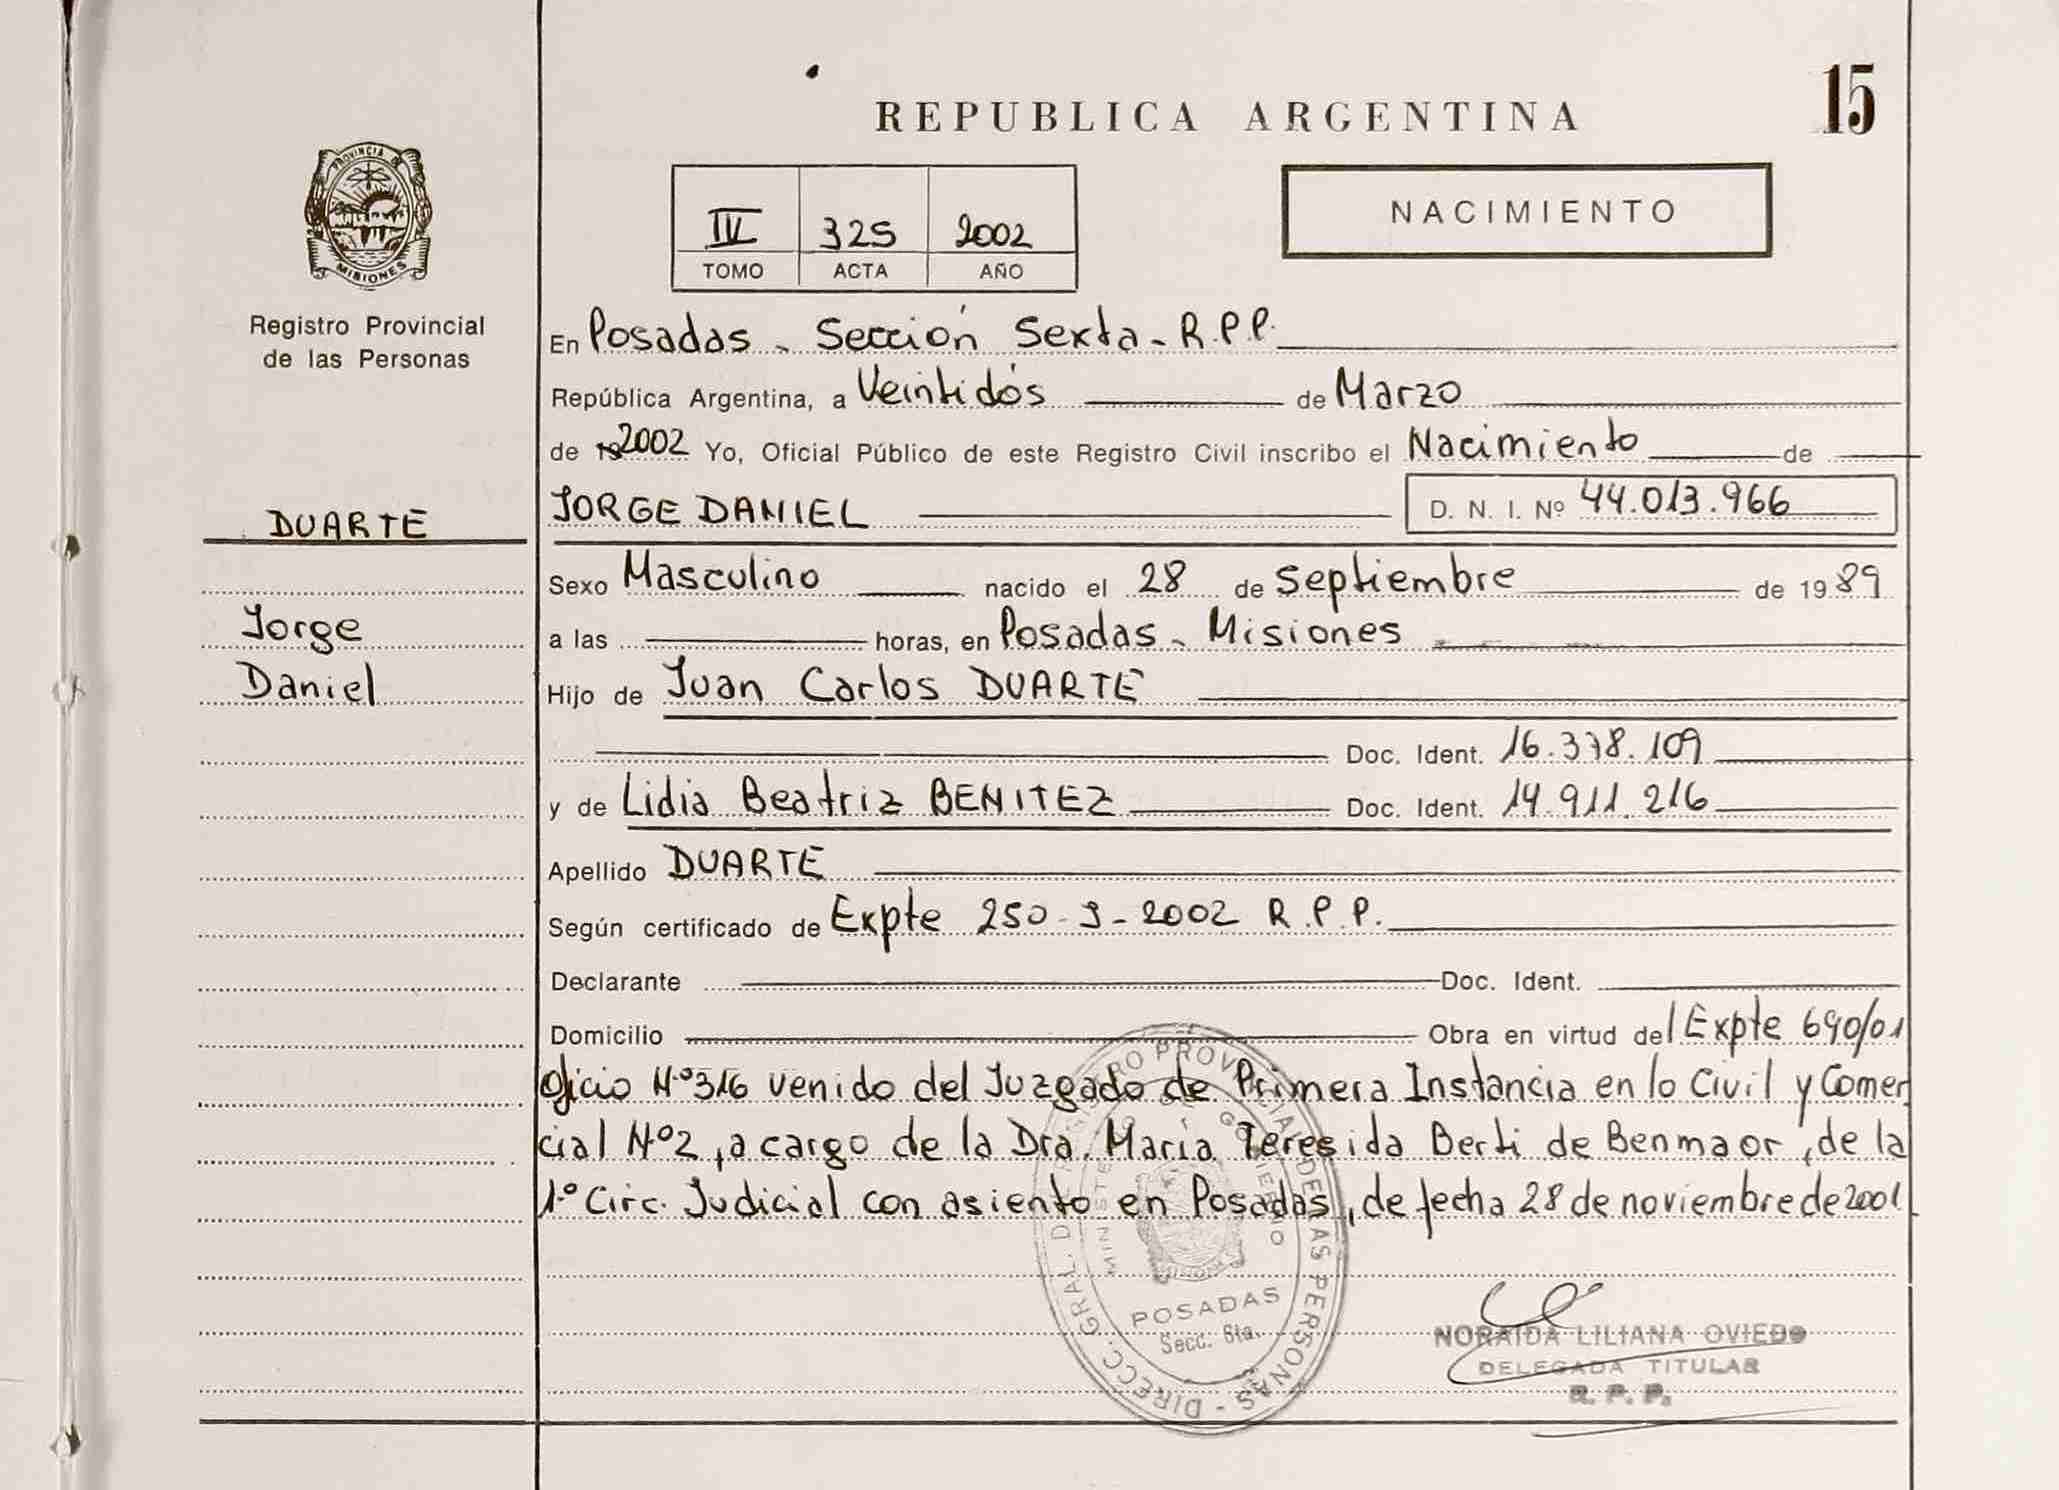 REPUBLICA ARGENTINA
15
PROVINCIA DE
MISIONES
Registro Provincial
de las Personas
IV 325 2002
TOMO ACTA AÑO
NACIMIENTO
En Posadas - Sección Sexta - R.P.P.
República Argentina, a Veintidós de Marzo
de 2002 Yo, Oficial Público de este Registro Civil inscribo el Nacimiento de
DUARTE
JORGE DANIEL D. N. I. Nº 44.013.966
Sexo Masculino nacido el 28 de Septiembre de 1989
Jorge
a las horas, en Posadas - Misiones
Daniel
Hijo de Juan Carlos DUARTE
Doc. Ident. 16.378.109
y de Lidia Beatriz BENITEZ Doc. Ident. 14.911.216
Apellido DUARTE
Según certificado de Expte 250-J-2002 R.P.P.
Declarante Doc. Ident.
Domicilio Obra en virtud del Expte 690/01
oficio Nº 316 venido del Juzgado de Primera Instancia en lo Civil y Comer
cial Nº2, a cargo de la Dra. María Teresida Berti de Benmaor, de la
1º Circ. Judicial con asiento en Posadas, de fecha 28 de noviembre de 2001.
DIRECC. GRAL. DE REGISTRO PROVINCIAL DE LAS PERSONAS
MINISTE DE GOBIERNO
POSADAS
Secc. 6ta.
NORAIDA LILIANA OVIEDO
DELEGADA TITULAR
R. P. P.